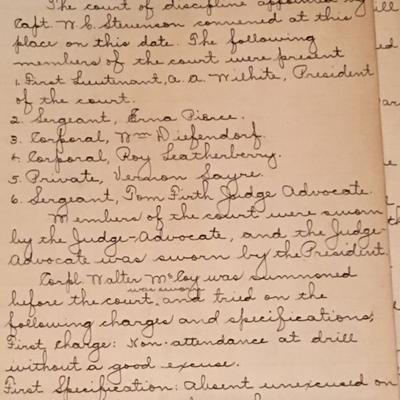 The court of discipline appointed by
Capt. W. C. Stevenson convened at this
place on this date. The following
members of the court were present
1. First Lieutenant, A. A. Wilhite, President
of the court.
2. Sergeant, Erna Pierce.
3. Corporal, Wm Diefendorf.
4. Corporal, Roy Leatherberry.
5. Private, Vernon Sayre.
6. Sergeant, Tom Firth Judge Advocate.
Members of the court were sworn
by the Judge-Advocate, and the Judge-
Advocate was sworn by the President.
Corpl. Walter McCoy was summoned
before the court, was sworn and tried on the
following charges and specifications;
First Charge: Non-attendance at drill
without a good excuse.
First Specification: Absent unexcused on